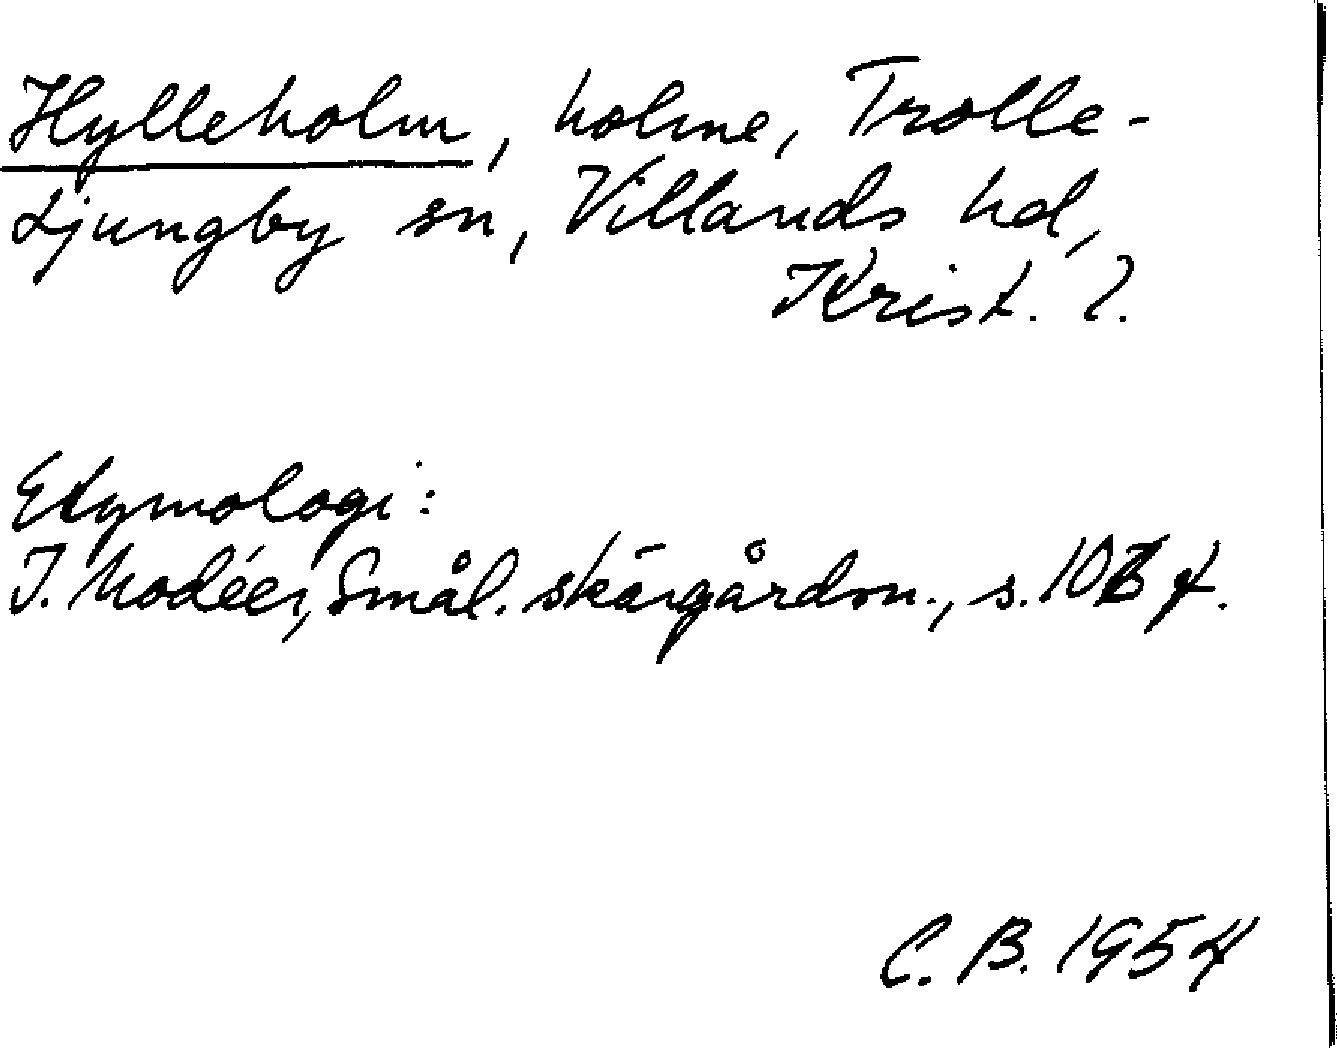 Hylleholm, holme, Trolle-
Ljungby sn, Villands hd,
Krist. l.
Etymologi:
I. Modéer, Smål. skärgårdsn., s. f.
C. B. 1954